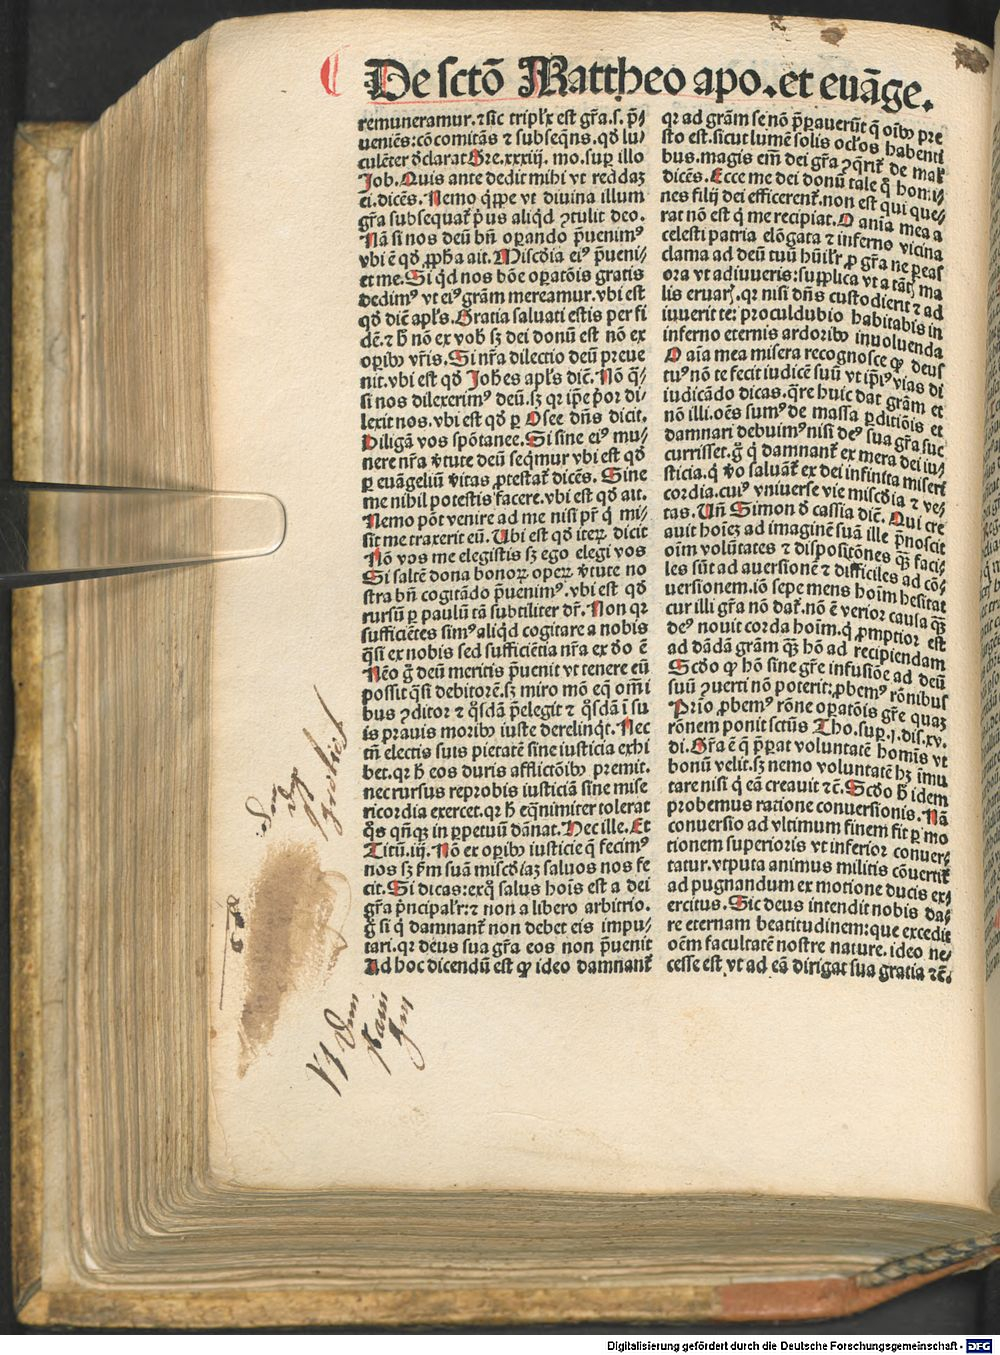 De sctō Mattheo apo. et evāge.
remuneramur. ⁊ sic tripl'r est gr̄a. s. p̄/
ueniēs: cōcomitās ⁊ subseqn̄s. qd̄ lu/
culēter d̄clarat Gre. xxxiij. mo. sup̱ illo
Job. Quis ante dedit mihi vt reddaꝫ
ei. dicēs. Nemo q̇ppe vt diuina illum
gr̄a subsequat̄ p̓us aliqd̄ ꝯtulit deo.
Nā si nos deū bn̄ oꝑando p̄uenimꝰ
vbi ē qd̄ ꝓph̄a ait. Miscd̓ia eiꝰ p̄ueni/
et me. Si qd̓ nos bōe oꝑatōis gratis
dedimꝰ vt eiꝰ grām mereamur. vbi est
qd̄ dic̄ apl's. Gratia saluati estis per fi
dē. ⁊ h̄ nō ex vob̄ sꝫ dei donū est nō ex
oꝑibꝰ vr̄is. Si nr̄a dilectio deū preue
nit. vbi est qd̄ Joh̄es apl's dic̄. Nō q̄/
si nos dilexerimꝰ deū. sꝫ qꝛ ip̄e p̓or di/
lexit nos. vbi est qd̄ ꝑ Osee dn̄s dicit.
Diligā vos spōtanee. Si sine eiꝰ mu/
nere nr̄a v̓tute deū seq̄mur vbi est qd̄
ꝑ euāgeliū v̓itas ꝓtestat̄ dicēs. Sine
me nihil potestis facere. vbi est qd̄ ait.
Nemo pōt venire ad me nisi pr̄ q̓ mi/
sit me traxerit eū. Ubi est qd̄ iteꝝ dicit
Nō vos me elegistis sꝫ ego elegi vos
Si saltē dona bonoꝝ opeꝝ v̓tute no
stra bn̄ cogitādo p̄uenimꝰ. vbi est qd̄
rursū ꝑ paulū tā subtiliter dr̄. Non qꝛ
sufficiētes simꝰ aliqd̓ cogitare a nobis
q̄si ex nobis sed sufficiētia nr̄a ex d̓o ē
Nēo g̓ deū meritis p̄uenit vt tenere eū
possit q̄si debitorē. sꝫ miro mō eq̄ om̄i
bus ꝯditor ⁊ q̊sdā p̄elegit ⁊ q̊sdā ī su
is prauis moribꝰ iuste derelinqt̓. Nec
tn̄ electis suis pietatē sine iusticia exhi
bet. qꝛ h̄ eos duris afflictōibꝰ premit.
nec rursus reprobis iusticiā sine mise
ricordia exercet. qꝛ h̄ eq̄nimiter tolerat
q̊s qn̄qꝫ in ꝑpetuū dānat. Hec ille. Et
Titū. iij. Nō ex oꝑibꝰ iusticie q̄ fecimꝰ
nos sꝫ ẜm suā miscd̓iaꝫ saluos nos fe
cit. Si dicas: exq̊ salus hoīs est a dei
gr̄a p̓ncipal'r: ⁊ non a libero arbitrio.
g̓ si q̓ damnant̄ non debet eis impu/
tari. qꝛ deus sua gr̄a eos non p̄uenit
Ad hoc dicendū est ꝙ ideo damnant̄
qꝛ ad grām se nō p̄ꝑauerūt q̄ oībꝰ pre
sto est. sicut lumē solis ocl'os habenti
bus. magis em̄ dei gr̄a ꝯq̄rit̄ de mal'
dicēs. Ecce me dei donū tale q̓ homi/
nes filij dei efficerent̄. non est qui que/
rat nō est q̓ me recipiat. O anīa mea a
celesti patria elōgata ⁊ inferno vicina
clama ad deū tuū hūil'r ꝓ gr̄a ne pereas
ora vt adiuueris: supplica vt a tāt̄ ma
lis eruar̄. qꝛ nisi dn̄s custodierit ⁊ ad
iuuerit te: proculdubio habitabis in
inferno eternis ardoribꝰ inuoluenda
O aīa mea misera recognosce ꝙ deus
tuꝰ nō te fecit iudicē suū vt ip̄iꝰ vias di
iudicādo dicas. q̄re huic dat grām et
nō illi. oēs sumꝰ de massa ꝑditiōis et
damnari debuimꝰ nisi deꝰ sua gr̄a suc
currisset. g̓ q̓ damnant̄ ex mera dei iu/
sticia. q̓ v̓o saluāt̄ ex dei infinita miseri
cordia. cuiꝰ vniuerse vie miscd̓ia ⁊ ve/
ritas. Un̄ Simon d̓ cassia dic̄. Qui cre
auit hoīeꝫ ad imaginē suā ille p̄noscit
oīm volūtates ⁊ dispositōnes q̄ꝫ faci/
les sūt ad auersionē ⁊ difficiles ad cō/
uersionem. iō sepe mens hoīm hesitat
cur illi gr̄a nō dat̄. nō ē verior causa q̄ꝫ
deꝰ nouit corda hoīm. q̓ ꝓmptior est
ad dādā grām q̄ꝫ hō ad recipiendam
Scd̓o ꝙ hō sine gr̄e infusiōe ad deū
suū ꝯuerti nō poterit: ꝓbemꝰ rōnibus
Prīo ꝓbemꝰ rōne oꝑatōis gr̄e quaꝫ
rōnem ponit sctūs Tho. sup̱. j. dis. xv.
di. Gr̄a ē q̄ p̄ꝑat voluntatē homīs vt
bonū velit. sꝫ nemo voluntatē hꝫ īmu
tare nisi q̓ eā creauit ⁊c̄. Scd̓o h̄ idem
probemus ratione conuersionis. Nā
conuersio ad vltimum finem fit ꝑ mo
tionem superioris vt inferior conuer/
tatur. vtputa animus militis cōuertit̄
ad pugnandum ex motione ducis ex/
ercitus. Sic deus intendit nobis da/
re eternam beatitudinem: que excedit
oēm facultatē nostre nature. ideo ne/
cesse est vt ad eā dirigat sua gratia ⁊c̄.
Digitalisierung gefördert durch die Deutsche Forschungsgemeinschaft - DFG